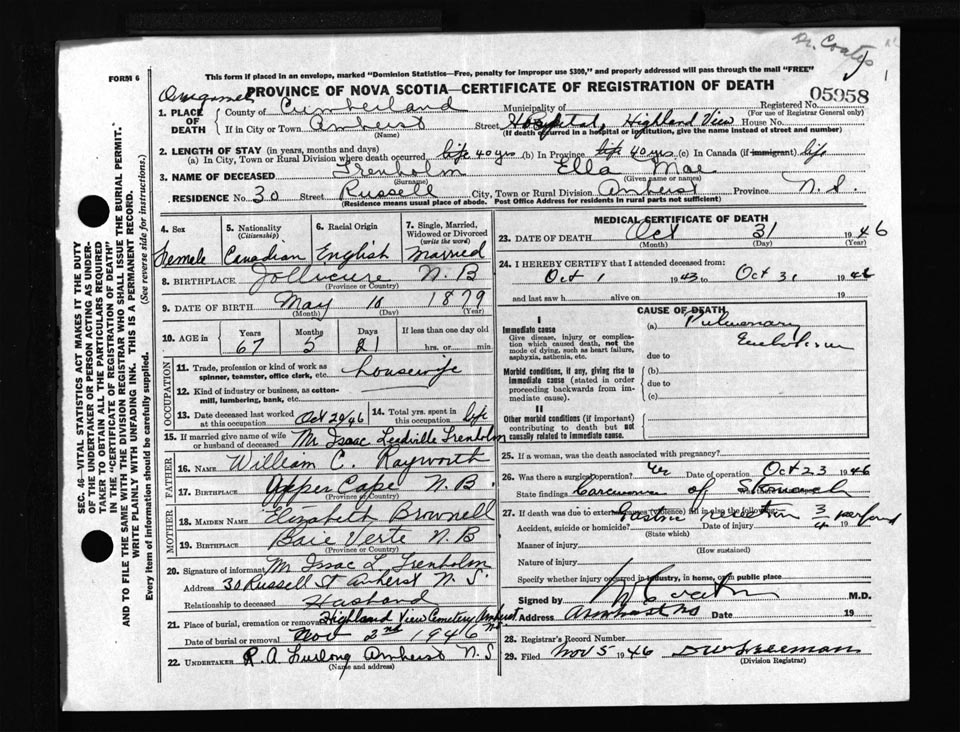 Dr. Coates
FORM 6
This form if placed in an envelope, marked "Dominion Statistics—Free, penalty for improper use $300," and properly addressed will pass through the mail "FREE"
PROVINCE OF NOVA SCOTIA—CERTIFICATE OF REGISTRATION OF DEATH
05958
1. PLACE OF DEATH County of Cumberland Municipality of Registered No.
(For use of Registrar General only)
If in City or Town Amherst Street Hospital, Highland View House No.
(Name) (If death occurred in a hospital or institution, give the name instead of street and number)
2. LENGTH OF STAY (in years, months and days)
(a) In City, Town or Rural Division where death occurred life 40 yrs (b) In Province life 40 yrs (c) In Canada (if immigrant) life
3. NAME OF DECEASED Trenholm Ella Mae
(Surname) (Given name or names)
RESIDENCE No. 30 Street Russell City, Town or Rural Division Amherst Province N.S.
(Residence means usual place of abode. Post Office Address for residents in rural parts not sufficient)
4. Sex 5. Nationality (Citizenship) 6. Racial Origin 7. Single, Married, Widowed or Divorced (write the word)
Female Canadian English Married
8. BIRTHPLACE Jollicure N.B
(Province or Country)
9. DATE OF BIRTH May 10 1879
(Month) (Day) (Year)
10. AGE in Years Months Days If less than one day old
67 5 21 hrs. or min.
OCCUPATION
11. Trade, profession or kind of work as spinner, teamster, office clerk, etc. housewife
12. Kind of industry or business, as cotton-mill, lumbering, bank, etc.
13. Date deceased last worked at this occupation Oct 20/46 14. Total yrs. spent in this occupation life
15. If married give name of wife or husband of deceased Mr Isaac Leedville Trenholm
FATHER
16. NAME William C. Rayworth
17. BIRTHPLACE Upper Cape N.B.
(Province or Country)
MOTHER
18. MAIDEN NAME Elizabeth Brownell
19. BIRTHPLACE Baie Verte N.B
(Province or Country)
20. Signature of informant Mr Issac L Trenholm
Address 30 Russell St Amherst N.S.
Relationship to deceased Husband
21. Place of burial, cremation or removal Highland View Cemetery Amherst N.S
Date of burial or removal Nov 2nd 1946
22. UNDERTAKER R.A. Furlong Amherst N.S
(Name and address)
MEDICAL CERTIFICATE OF DEATH
23. DATE OF DEATH Oct 31 1946
(Month) (Day) (Year)
24. I HEREBY CERTIFY that I attended deceased from:
Oct 1 1943 to Oct 31 1946
and last saw h alive on 19
CAUSE OF DEATH
I
Immediate cause
Give disease, injury or complication which caused death, not the mode of dying, such as heart failure, asphyxia, asthenia, etc.
(a) Pulmonary Embolism
due to
Morbid conditions, if any, giving rise to immediate cause (stated in order proceeding backwards from immediate cause).
(b)
due to
(c)
II
Other morbid conditions (if important) contributing to death but not causally related to immediate cause.
25. If a woman, was the death associated with pregnancy?
26. Was there a surgical operation? Yes Date of operation Oct 23 1946
State findings Carcinoma of Stomach
27. If death was due to external causes (violence) fill in also the following: Gastric resection 3/4
Accident, suicide or homicide? Date of injury 19
(State which)
Manner of injury
(How sustained)
Nature of injury
Specify whether injury occurred in industry, in home, or in public place
Signed by M.D.
Address Amherst NS Date 19
28. Registrar's Record Number
29. Filed Nov 5 1946
(Division Registrar)
SEC. 46—VITAL STATISTICS ACT MAKES IT THE DUTY
OF THE UNDERTAKER OR PERSON ACTING AS UNDER-
TAKER TO OBTAIN ALL THE PARTICULARS REQUIRED
IN THE "CERTIFICATE OF REGISTRATION OF DEATH"
AND TO FILE THE SAME WITH THE DIVISION REGISTRAR WHO SHALL ISSUE THE BURIAL PERMIT.
WRITE PLAINLY WITH UNFADING INK. THIS IS A PERMANENT RECORD.
Every item of information should be carefully supplied. (See reverse side for instructions.)